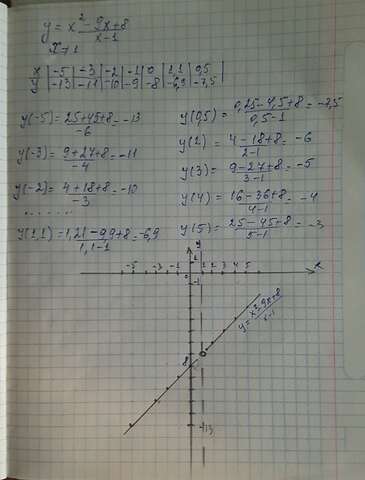 y = x² - 9x + 8 / x - 1
x ≠ 1
x | -5 | -3 | -2 | -1 | 0 | 1,1 | 0,5 |
y | -13 | -11 | -10 | -9 | -8 | -6,9 | -7,5 |
y(-5) = 25+45+8 / -6 = -13
y(0,5) = 0,25-4,5+8 / 0,5-1 = -7,5
y(2) = 4-18+8 / 2-1 = -6
y(-3) = 9+27+8 / -4 = -11
y(3) = 9-27+8 / 3-1 = -5
y(-2) = 4+18+8 / -3 = -10
y(4) = 16-36+8 / 4-1 = -4
......
y(1,1) = 1,21-9,9+8 / 1,1-1 = -6,9
y(5) = 25-45+8 / 5-1 = -3
y
1
-5 -3 -1 0 1 2 3 4 5 x
-1
y = x²-9x+8 / x-1
8
-13